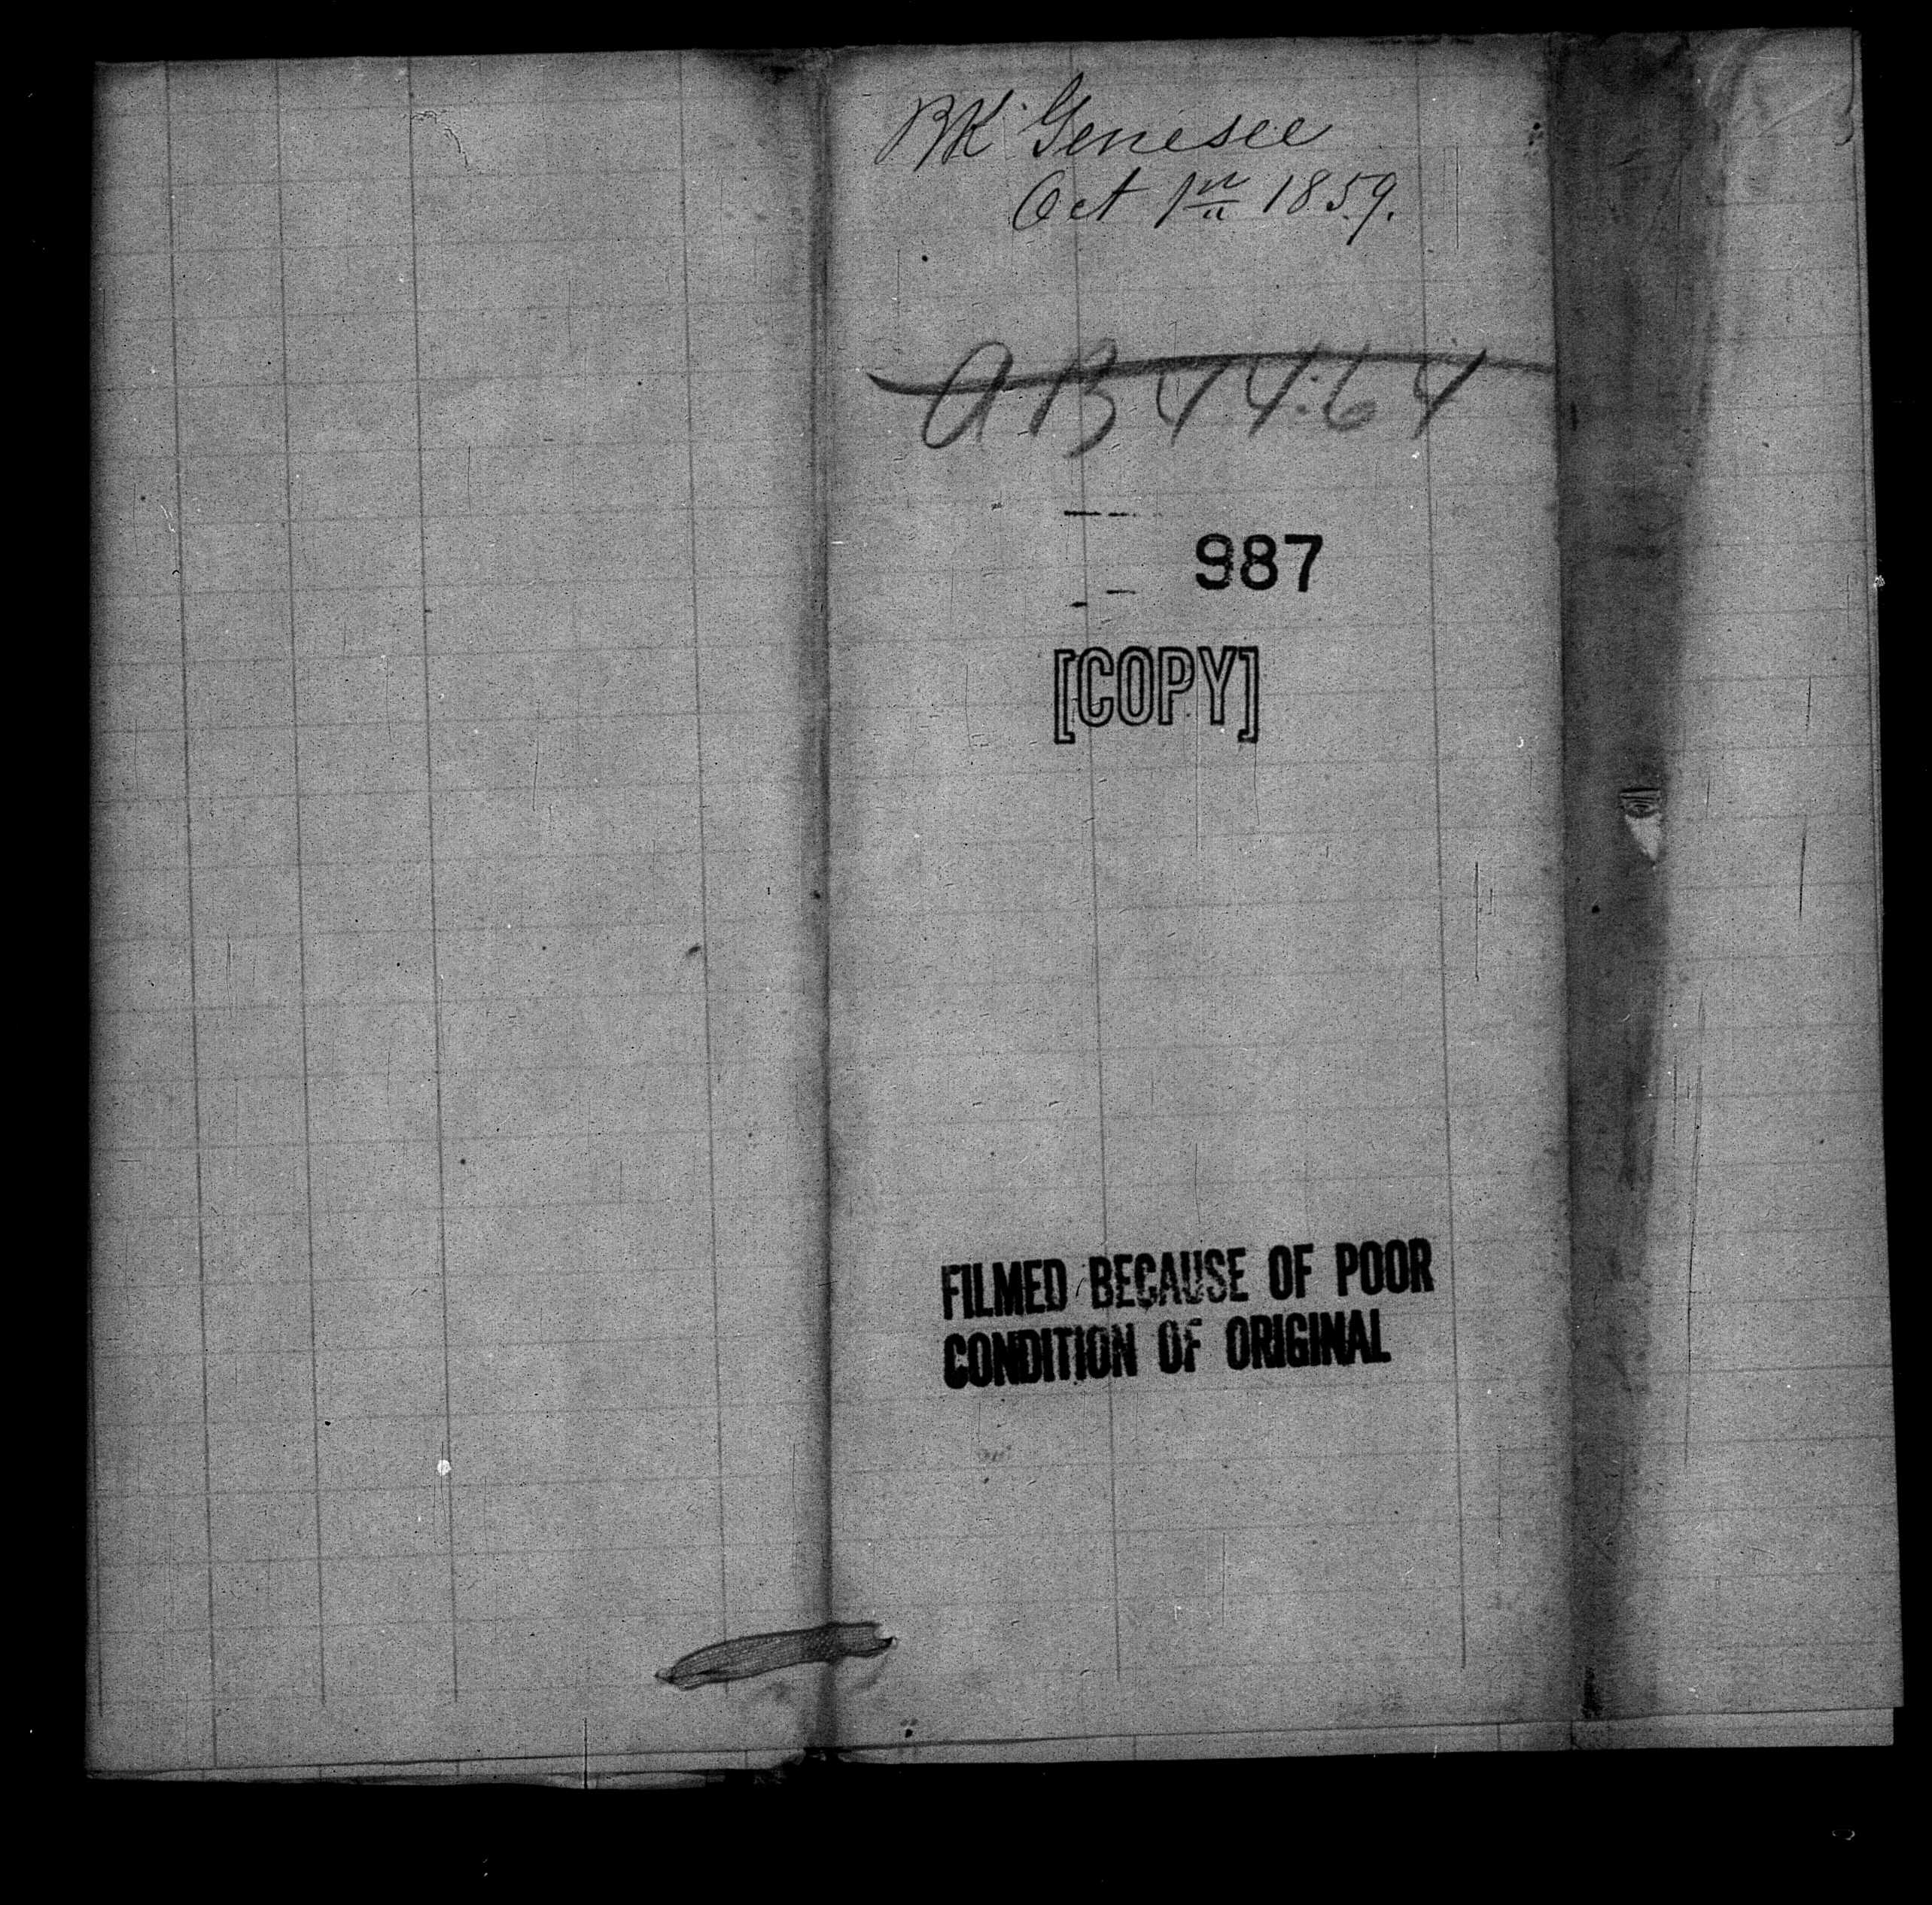 BK Genesee
Oct 1st 1859.
AB 4464
987
[COPY]
FILMED BECAUSE OF POOR
CONDITION OF ORIGINAL